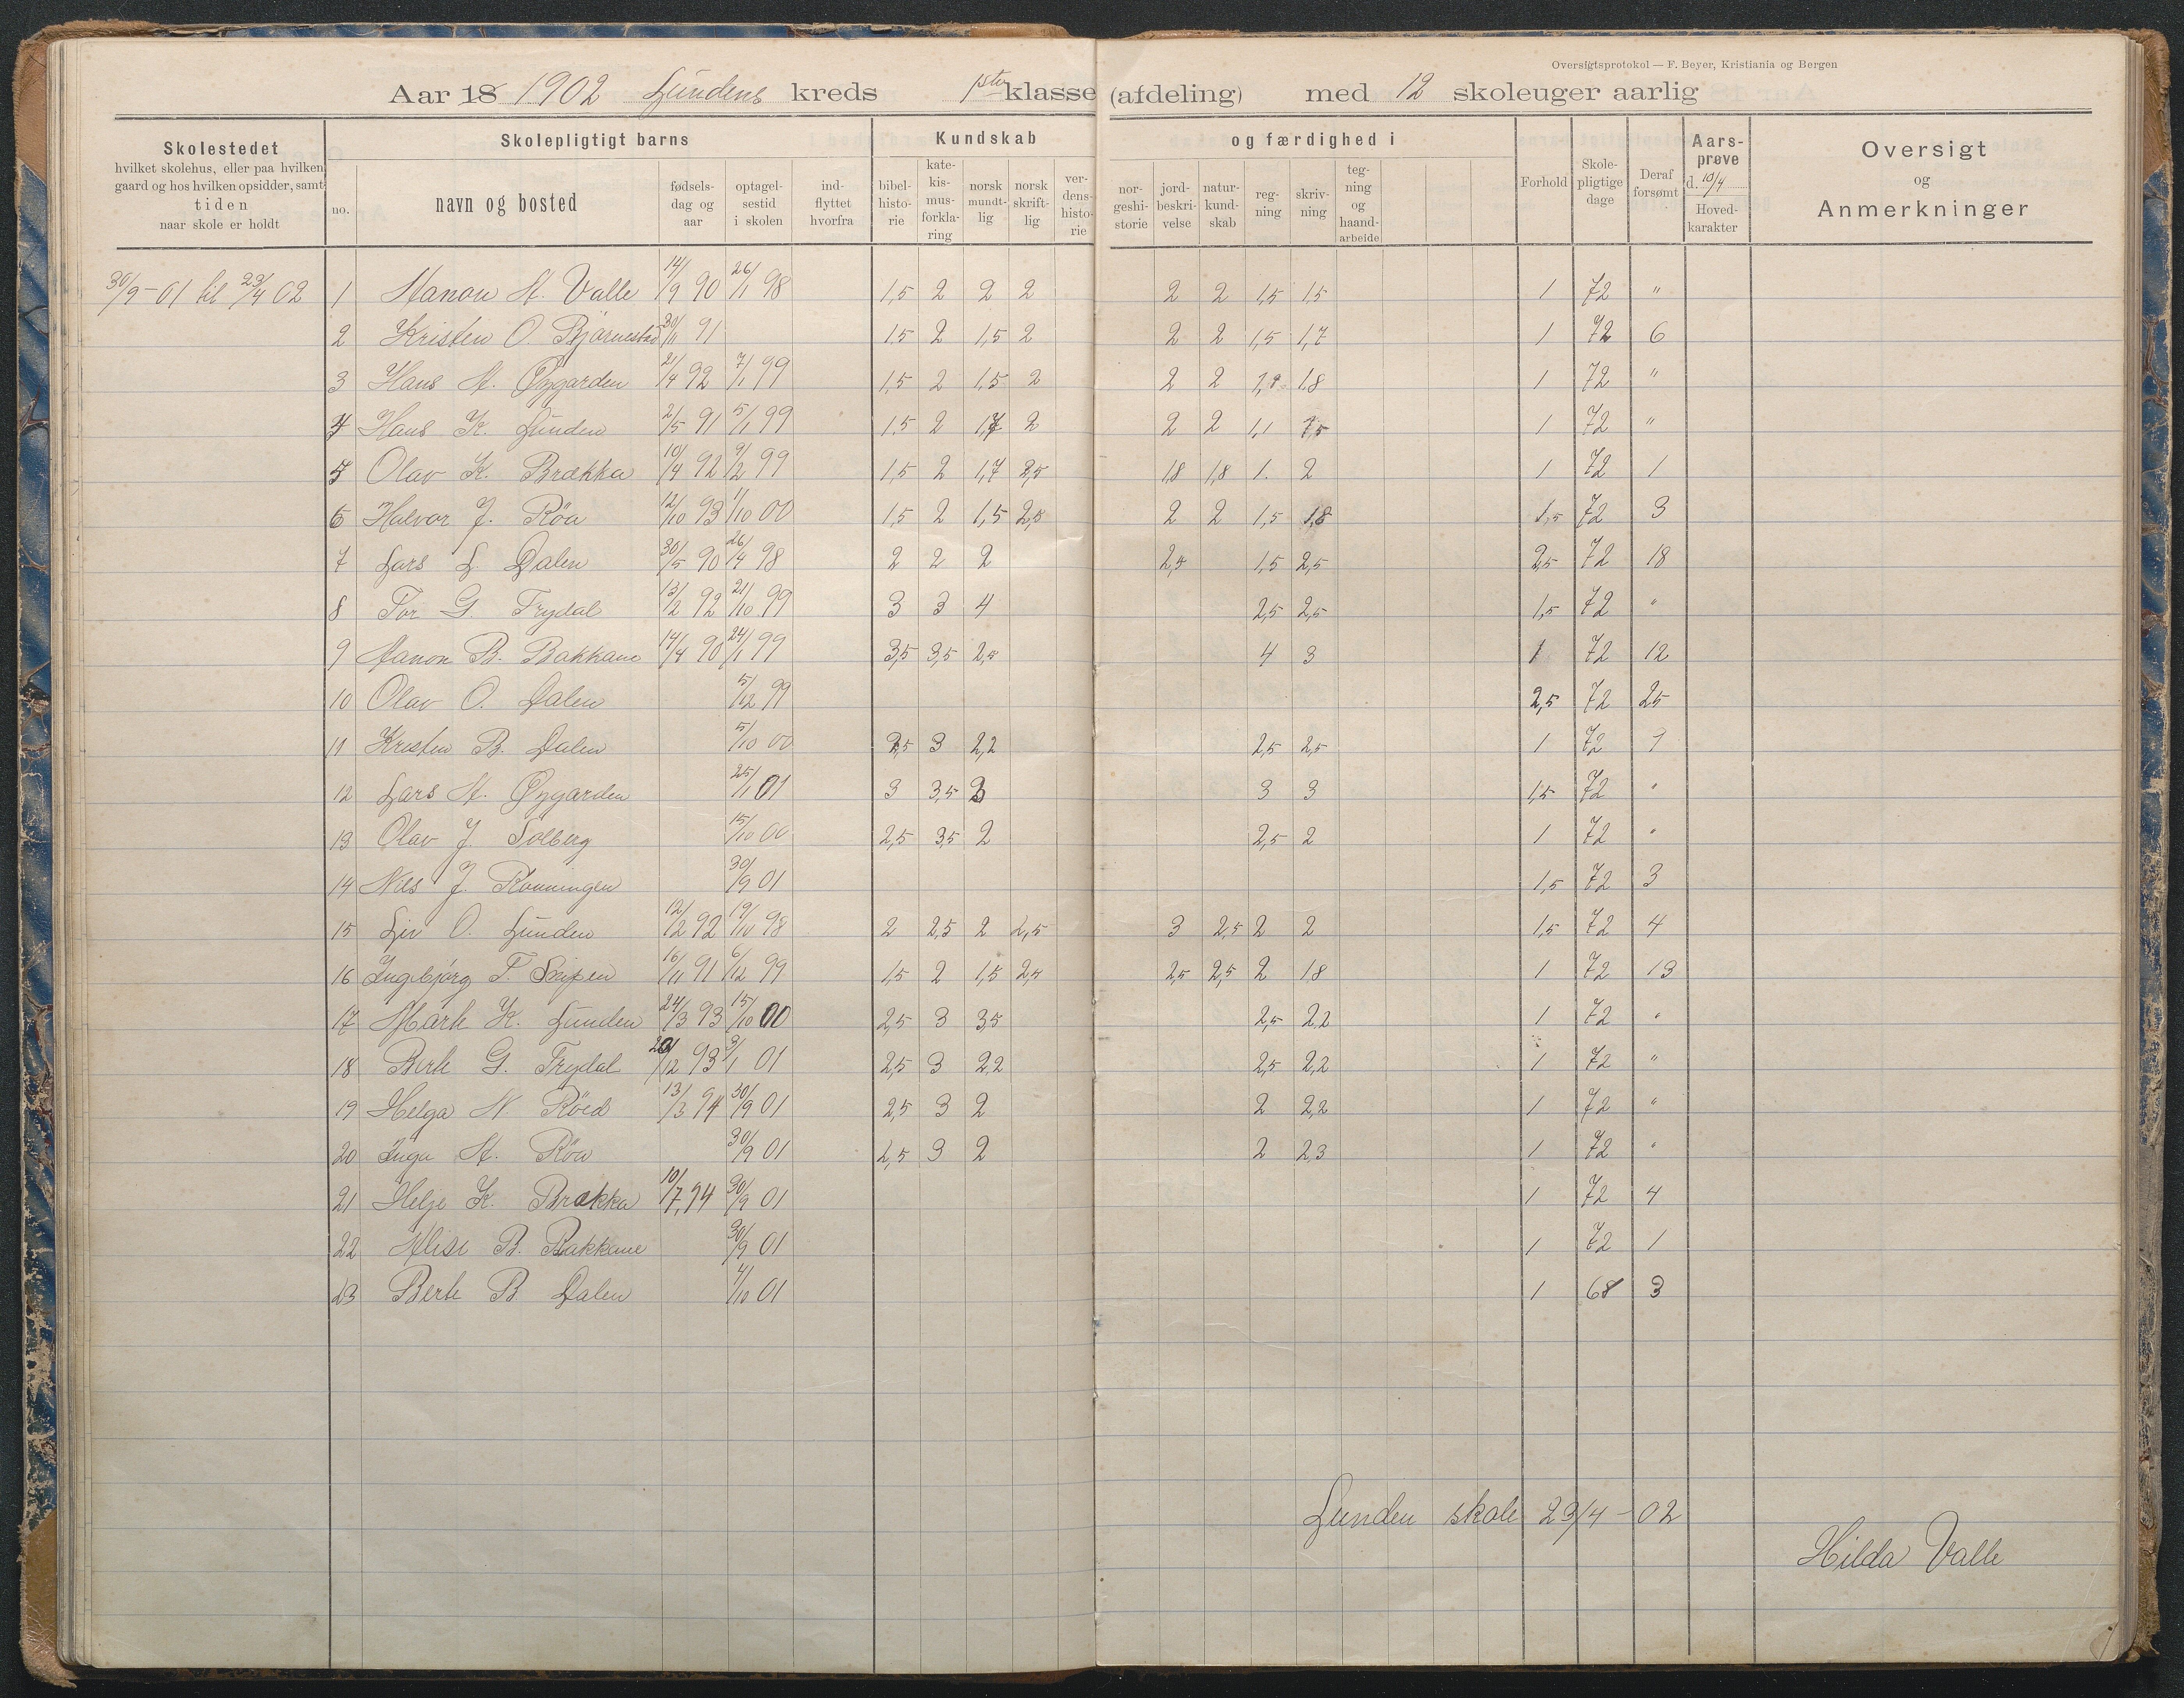 Oversigtsprotokol — F. Beyer, Kristiania og Bergen
Aar 18 1902 Lundens kreds 1ste klasse (afdeling) med 12 skoleuger aarlig
Skolestedet hvilket skolehus, eller paa hvilken gaard og hos hvilken opsidder, samt tiden naar skole er holdt
Skolepligtigt barns
no. navn og bosted fødselsdag og aar optagelsestid i skolen indflyttet hvorfra
Kundskab og færdighed i
bibelhistorie katekismusforklaring norsk mundtlig norsk skriftlig verdenshistorie norgeshistorie jordbeskrivelse naturkundskab regning skrivning tegning og haandarbeide
Forhold Skolepligtige dage Deraf forsømt Aarsprøve d. 10/4 Hovedkarakter
Oversigt og Anmerkninger
30/9-01 til 23/4 02 1 Aanon A. Valle 14/9 90 26/1 98 1,5 2 2 2 2 2 1,5 1,5 1 72 "
2 Kristen O. Bjørnestad 30/11 91 1,5 2 1,5 2 2 2 1,5 1,7 1 72 6
3 Hans A. Øygarden 21/4 92 7/1 99 1,5 2 1,5 2 2 2 1,8 1 72 "
4 Hans K. Lunden 2/5 91 5/1 99 1,5 2 1,7 2 2 2 1,1 1,5 1 72 "
5 Olav K. Brækka 10/4 92 9/2 99 1,5 2 1,7 2,5 1,8 1,8 1. 2 1 72 1
6 Halvor J. Røa 12/10 93 1/10 00 1,5 2 1,5 2,5 2 2 1,5 1,8 1,5 72 3
7 Lars L. Dalen 30/5 90 26/4 98 2 2 2 2,5 1,5 2,5 2,5 72 18
8 Tor G. Frydal 13/2 92 21/10 99 3 3 4 2,5 2,5 1,5 72 "
9 Aanon B. Bakkane 14/4 90 24/1 99 3,5 3,5 2,5 4 3 1 72 12
10 Olav O. Dalen 5/12 99 2,5 72 25
11 Kristen B. Dalen 5/10 00 2,5 3 2,2 2,5 2,5 1 72 9
12 Lars A. Øygarden 25/1 01 3 3,5 3 3 3 1,5 72 "
13 Olav J. Solberg 15/10 00 2,5 3,5 2 2,5 2 1 72 "
14 Nils J. Rønningen 30/9 01 1,5 72 3
15 Liv O. Lunden 12/2 92 19/10 98 2 2,5 2 2,5 3 2,5 2 2 1,5 72 4
16 Ingebjørg T. 16/11 91 6/12 99 1,5 2 1,5 2,5 2,5 2,5 2 1,8 1 72 13
17 K. Lunden 24/3 93 15/10 00 2,5 3 3,5 2,5 2,2 1 72 "
18 Berte G. Frydal 20/12 93 3/1 01 2,5 3 2,2 2,5 2,2 1 72 "
19 Helga N. Røed 13/3 94 30/9 01 2,5 3 2 2 2,2 1 72 "
20 Inga A. Røa 30/9 01 2,5 3 2 2 2,3 1 72 "
21 Helje K. Brækka 10/7,94 30/9 01 1 72 4
22 Alise B. Bakkane 30/9 01 1 72 1
23 Berte B Dalen 4/10 01 1 68 3
Lunden skole 23/4-02
Hilda Valle